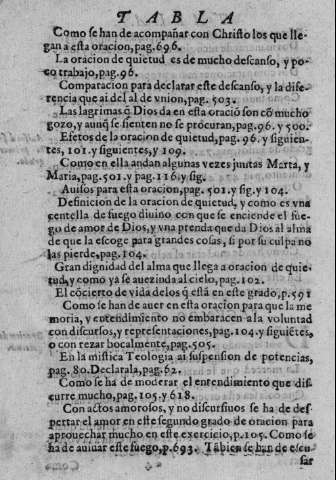 TABLA
Como se han de acompañar con Christo los que lle-
gan a esta oracion, pag. 696.
La oracion de quietud es de mucho descanso, y po-
co trabajo, pag. 96.
Comparacion para declarar este descanso, y la dife-
rencia que ai del al de vnion, pag. 503.
Las lagrimas q̃ Dios da en esta oraciõ son cõ mucho
gozo, y aunq̃ se sienten no se procuran, pag. 96. y 500.
Efetos de la oracion de quietud, pag. 96. y siguien-
tes, 101. y siguientes, y 109.
Como en ella andan algunas vezes juntas Marta, y
Maria, pag. 501. y pag. 116. y sig.
Auisos para esta oracion, pag. 501. y sig. y 104.
Definicion de la oracion de quietud, y como es vna
centella de fuego diuino con que se enciende el fue-
go de amor de Dios, y vna prenda que da Dios al alma
de que la escoge para grandes cosas, si por su culpa no
las pierde, pag. 104.
Gran dignidad del alma que llega a oracion de quie-
tud, y como ya se auezinda al cielo, pag. 102.
El cõcierto de vida de los q̃ està en este grado, p. 591
Como se han de auer en esta oracion para que la me
moria, y entendimiẽto no embaracen a la voluntad
con discursos, y representaciones, pag. 104. y siguiẽtes,
o con rezar bocalmente, pag. 505.
En la mistica Teologia ai suspension de potencias,
pag. 80. Declarala, pag. 62.
Como se ha de moderar el entendimiento que dis-
curre mucho, pag, 105. y 618.
Con actos amorosos, y no discursiuos se ha de des-
pertar el amor en este segundo grado de oracion para
aprouechar mucho en este exercicio, p. 105. Como se
ha de auiuar este fuego, p. 693. Tãbien se han de escu-
sar